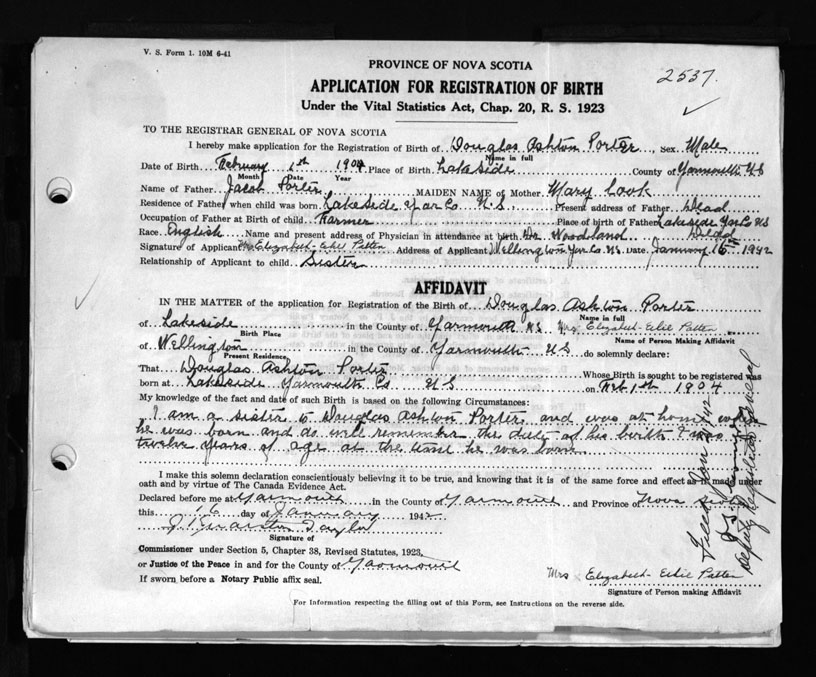 V. S. Form 1. 10M 6-41
PROVINCE OF NOVA SCOTIA
2537.
APPLICATION FOR REGISTRATION OF BIRTH
Under the Vital Statistics Act, Chap. 20, R. S. 1923
TO THE REGISTRAR GENERAL OF NOVA SCOTIA
I hereby make application for the Registration of Birth of Douglas Ashton Porter, Sex Male
Name in full
Date of Birth February 1st 1904 Place of Birth Lakeside County of Yarmouth N S
Month Date Year
Name of Father Jacob Porter MAIDEN NAME of Mother Mary Cook
Residence of Father when child was born Lakeside Yar Co N. S. Present address of Father Dead
Occupation of Father at Birth of child Farmer Place of birth of Father Lakeside Yar Co N S
Race English Name and present address of Physician in attendance at birth Dr Woodland Dead
Signature of Applicant Mrs Elizabeth Patten Address of Applicant Wellington Yar Co. N.S. Date January 15 1942
Relationship of Applicant to child Sister
AFFIDAVIT
IN THE MATTER of the application for Registration of the Birth of Douglas Ashton Porter
Name in full
of Lakeside in the County of Yarmouth N S. Mrs Elizabeth Patten
Birth Place Name of Person Making Affidavit
of Wellington in the County of Yarmouth N S do solemnly declare:
Present Residence
That Douglas Ashton Porter Whose Birth is sought to be registered was
born at Lakeside Yarmouth Co N S on Feb 1st 1904
My knowledge of the fact and date of such Birth is based on the following Circumstances:
I am a sister to Douglas Ashton Porter and was at home when
he was born and do well remember the date of his birth I was
twelve years of age at the time he was born
I make this solemn declaration conscientiously believing it to be true, and knowing that it is of the same force and effect as if made under
oath and by virtue of The Canada Evidence Act.
Declared before me at Yarmouth in the County of Yarmouth and Province of Nova Scotia
this 16 day of January 1942
Taylor
Signature of
Commissioner under Section 5, Chapter 38, Revised Statutes, 1923,
or Justice of the Peace in and for the County of Yarmouth
If sworn before a Notary Public affix seal.
Mrs Elizabeth Patten
Signature of Person making Affidavit
For Information respecting the filling out of this Form, see Instructions on the reverse side.
Deputy Registrar General